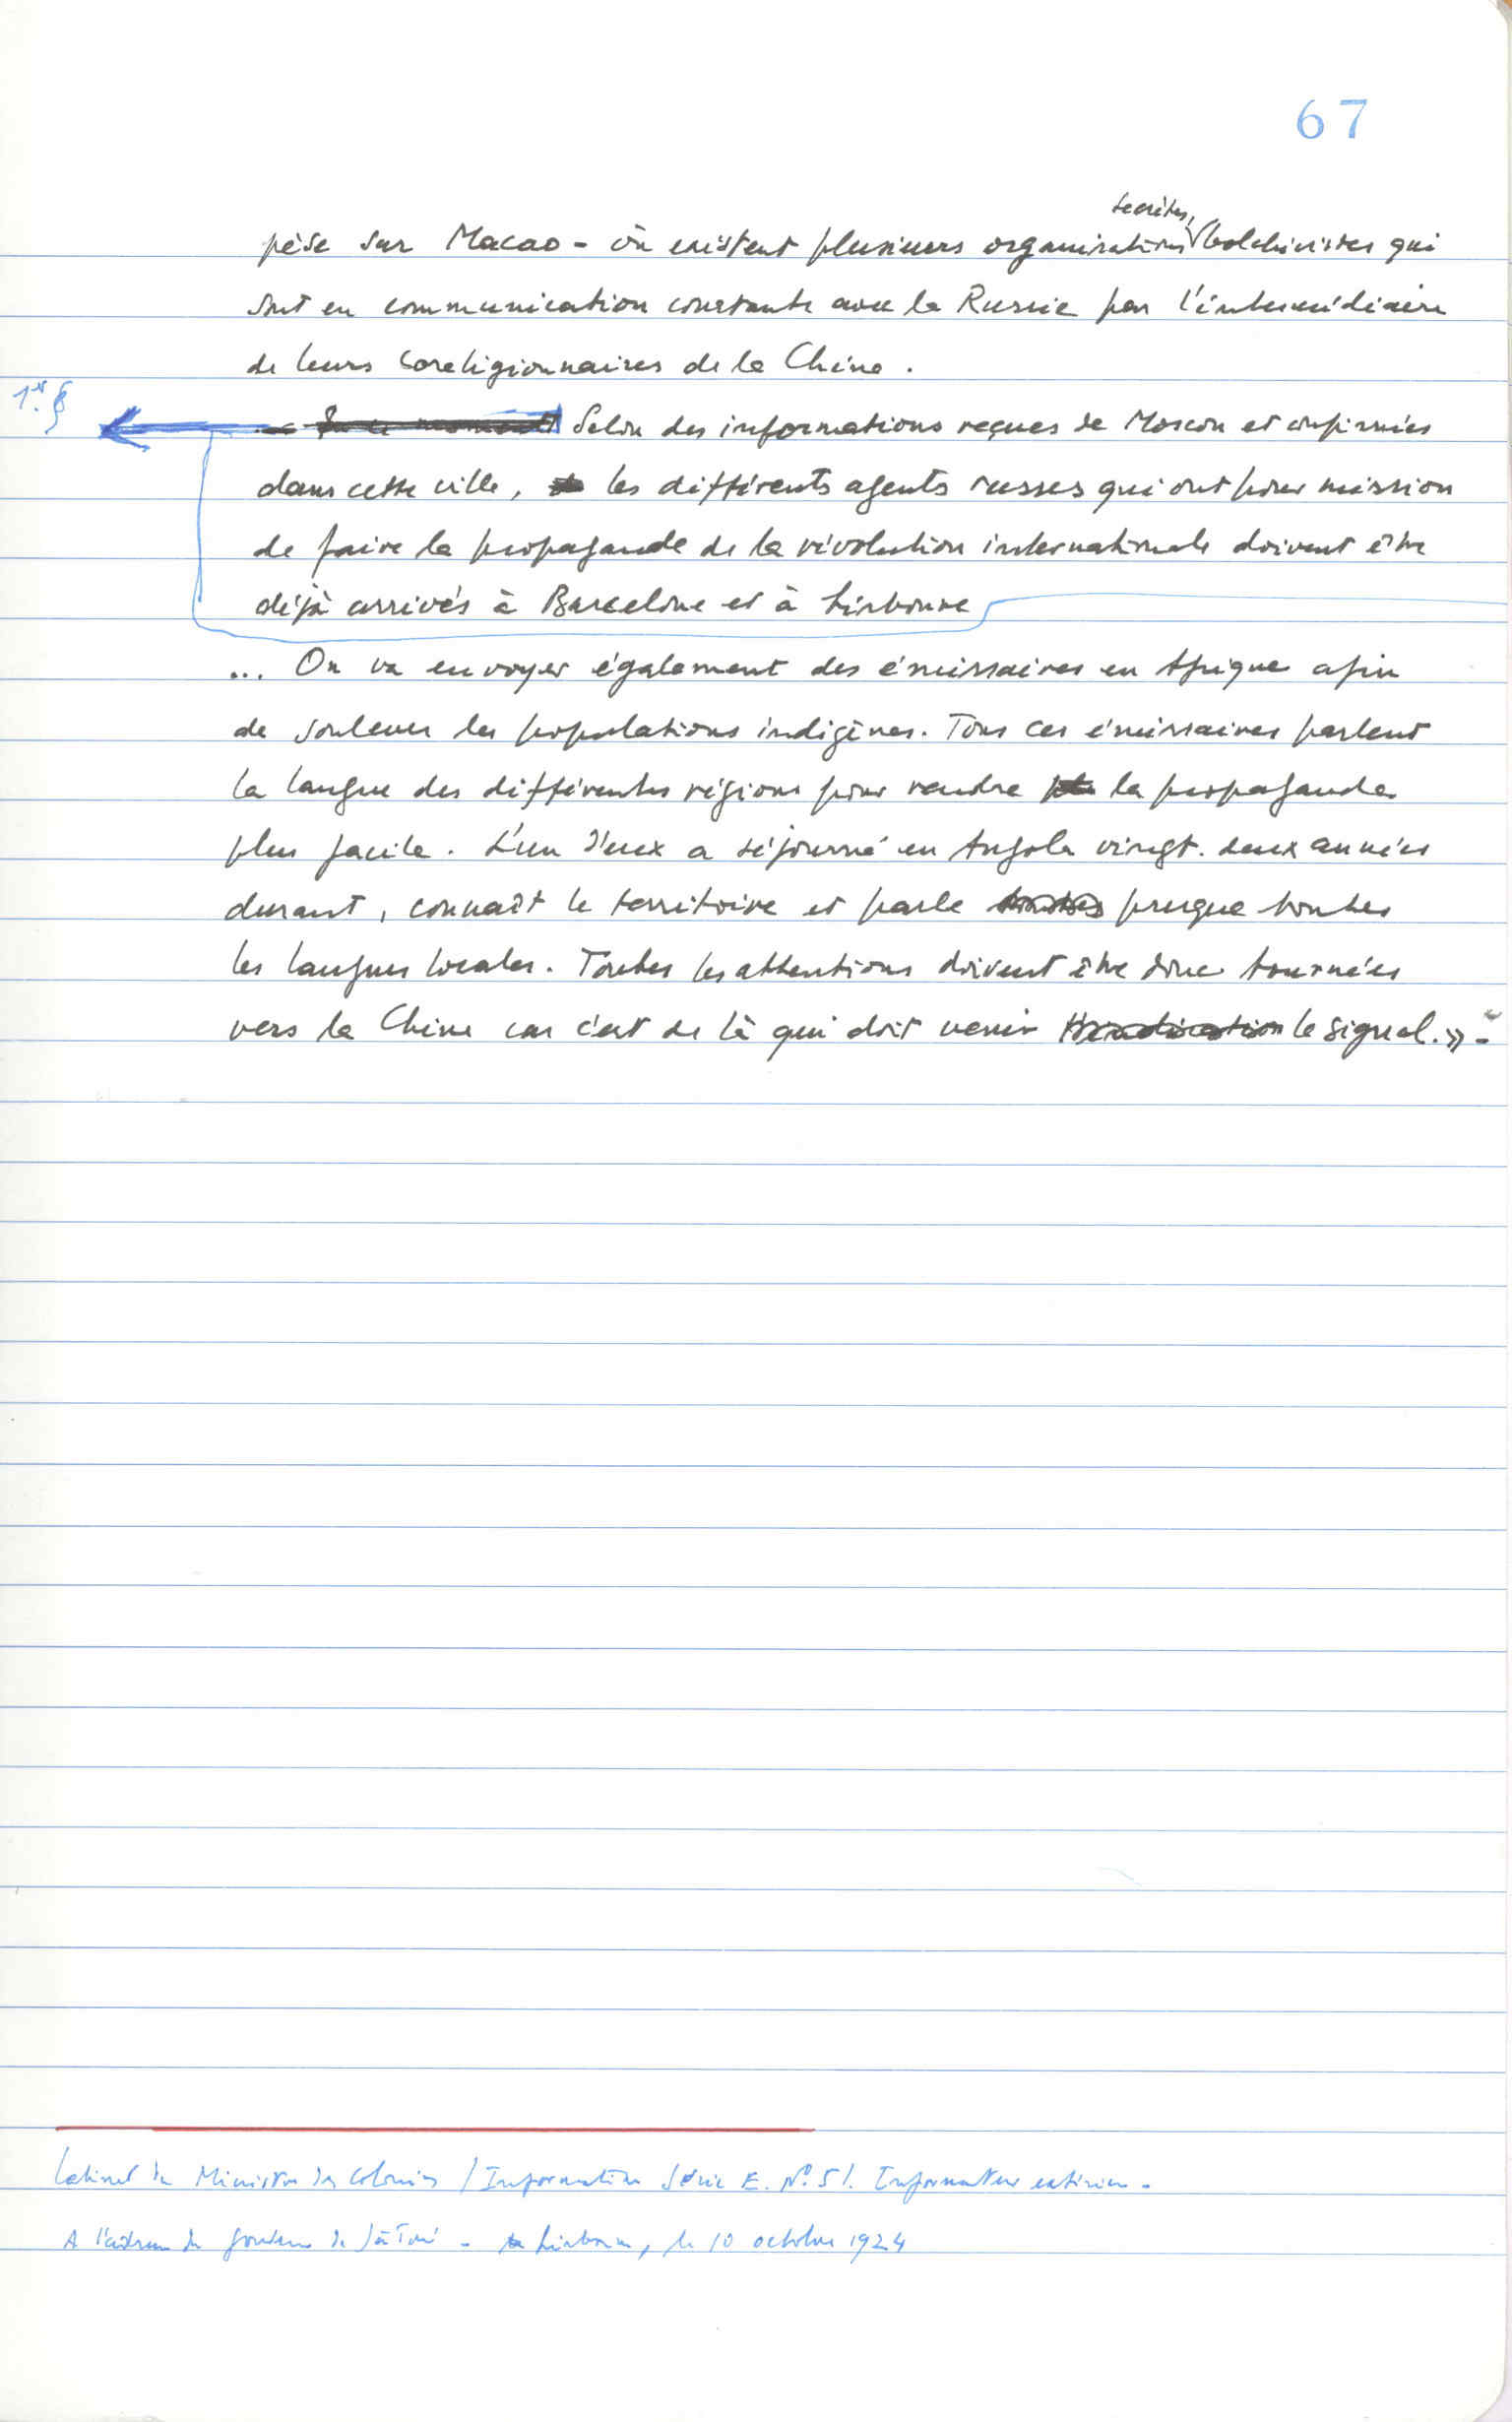 67
secrètes,
pèse sur Macao - où existent plusieurs organisations bolchévistes qui
sont en communication constante avec la Russie par l'intermédiaire
de leurs coreligionnaires de la Chine.
1er §
Selon des informations reçues de Moscou et confirmées
dans cette ville, les différents agents russes qui ont pour mission
de faire la propagande de la révolution internationale doivent être
déjà arrivés à Barcelone et à Lisbonne
... On va envoyer également des émissaires en Afrique afin
de soulever les populations indigènes. Tous ces émissaires parlent
la langue des différentes régions pour rendre la propagande
plus facile. L'un d'eux a séjourné en Angola vingt-deux années
durant, connaît le territoire et parle presque toutes
les langues locales. Toutes les attentions doivent être donc tournées
vers la Chine car c'est de là qui doit venir le signal.» -
Cabinet du Ministre des Colonies / Information Série E. Nº 51. Informateur extérieur -
A l'adresse du gouverneur de São Tomé - Lisbonne, le 10 octobre 1924